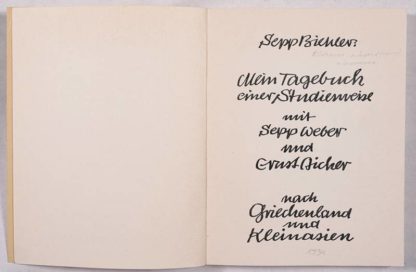 Sepp Bichler:
Mein Tagebuch
einer Studienreise
mit
Sepp Weber
und
Ernst Aicher
nach
Griechenland
und
Kleinasien